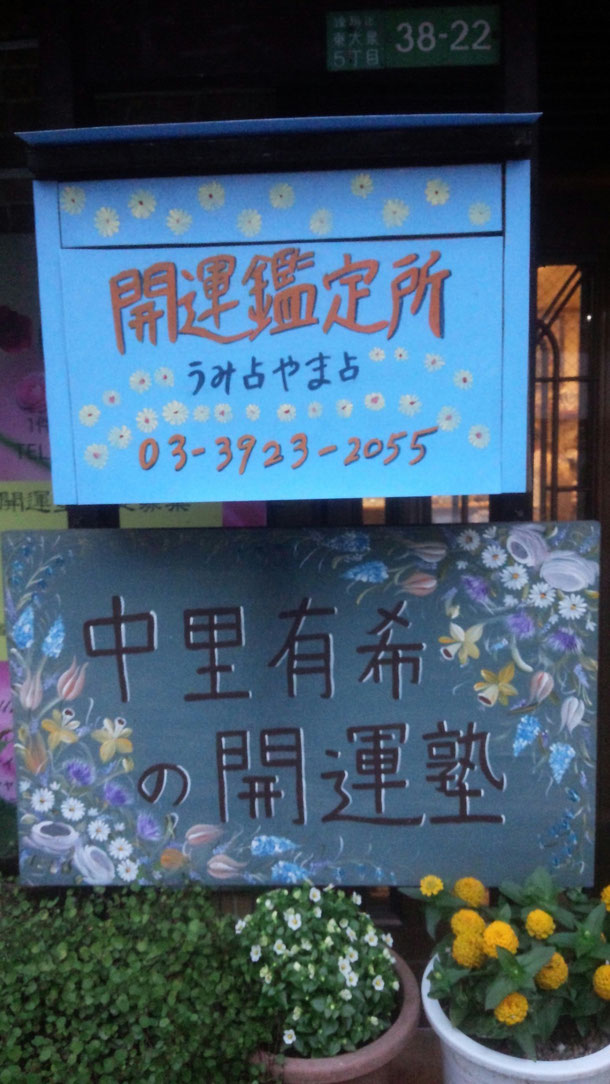 東大泉
5丁目
38-22
開運鑑定所
うみ占やま占
03-3923-2055
TEL
開運
中里有希
の開運塾